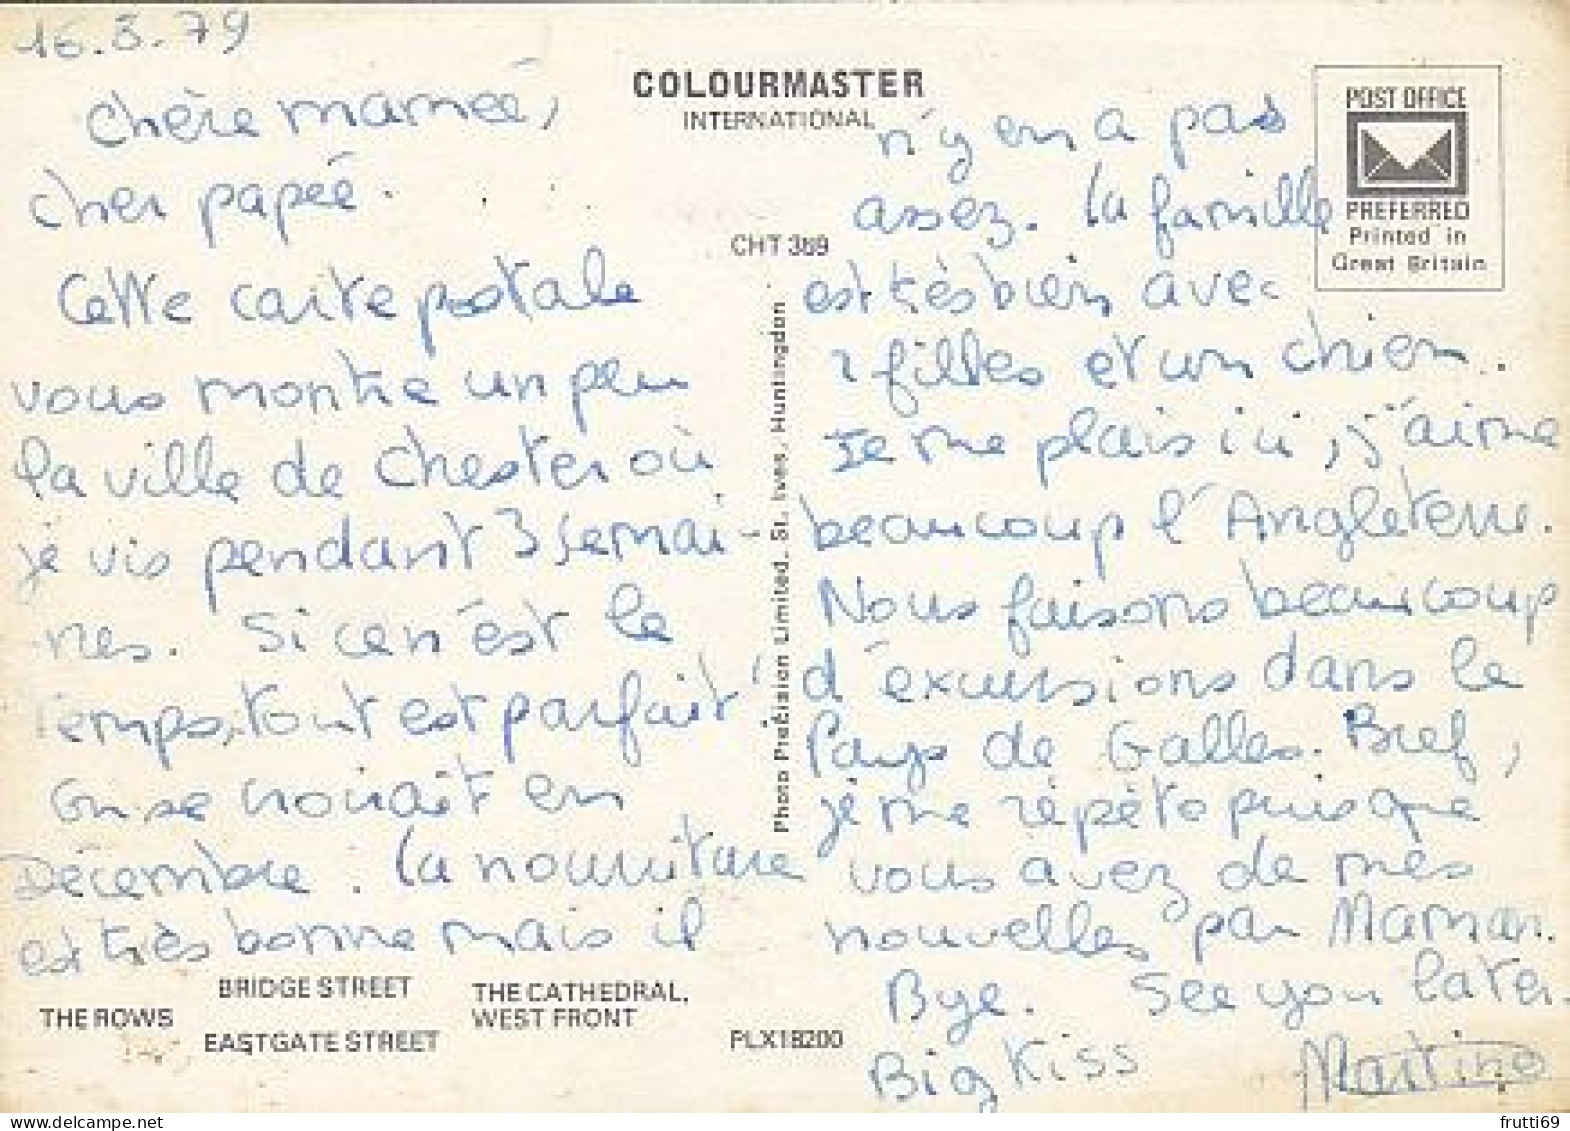 16.8.79
Chère mamée,
cher papée.
Cette carte postale
vous montre un peu
la ville de Chester où
je vis pendant 3 semai-
nes. Si ce n'est le
temps, tout est parfait
on se croirait en
Décembre. la nourriture
est très bonne mais il
COLOURMASTER
INTERNATIONAL
n'y en a pas
assez. la famille
est très bien avec
2 filles et un chien.
Je me plais ici, j'aime
beaucoup l'Angleterre.
Nous faisons beaucoup
d'excursions dans le
Pays de Galles. Bref,
je me répète puisque
vous avez de mes
nouvelles par Maman.
Bye. See you later.
Big Kiss Martine
POST OFFICE
PREFERRED
Printed in
Great Britain
CHT 389
Photo Precision Limited, St. Ives, Huntingdon
THE ROWS
BRIDGE STREET
EASTGATE STREET
THE CATHEDRAL,
WEST FRONT
PLX18200
delcampe.net
frutti69